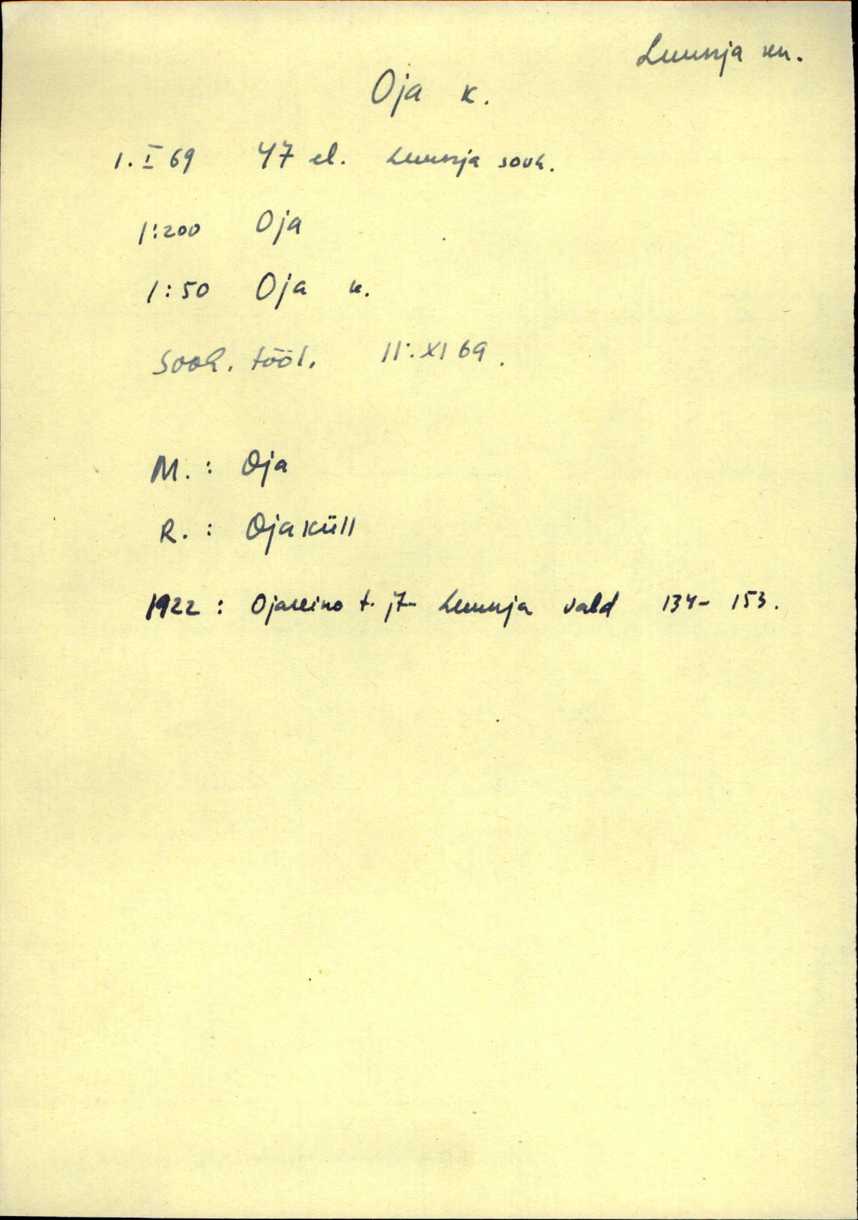 Luunja kn.
Oja k.
1. I 69 47 el. Luunja sovh.
1:200 Oja
1:50 Oja k.
Sovh. tööl. 11. XI 69.
M. : Oja
R. : Ojaküll
1922 : t. jt. Luunja vald 134- 153.